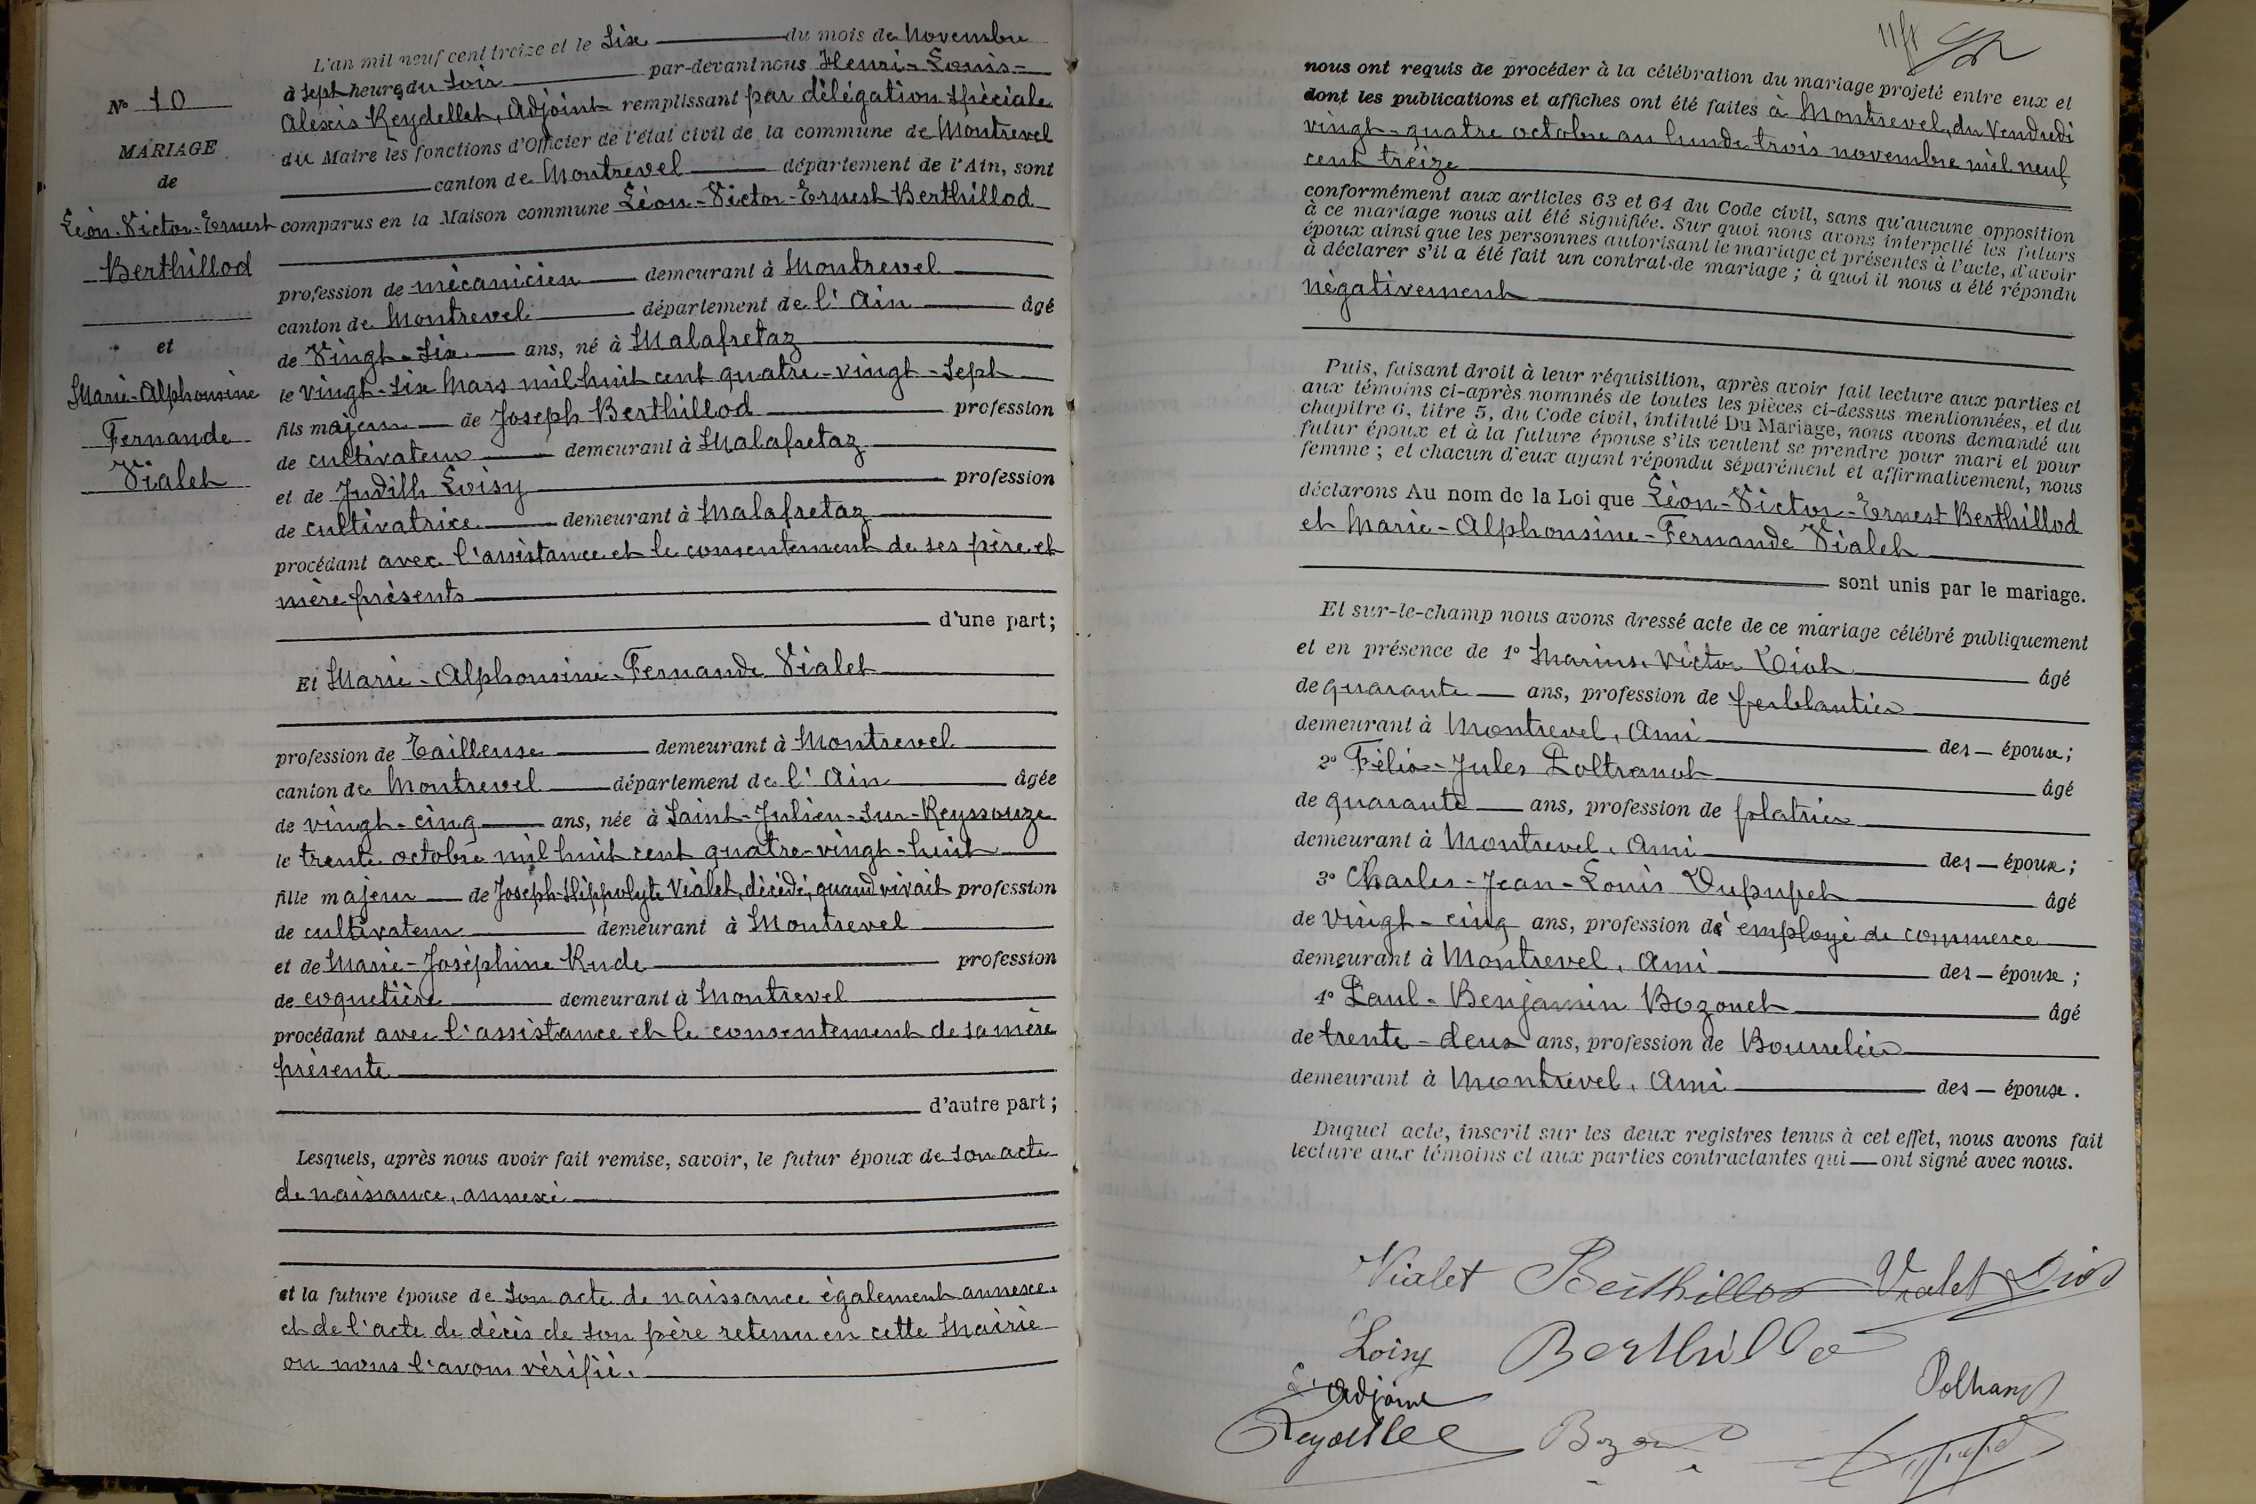 N° 10
MARIAGE
de
Léon-Victor-Ernest
Berthillod
et
Marie-Alphonsine
Fernande
Vialet
L'an mil neuf cent treize et le six du mois de Novembre
à sept heures du soir par-devant nous Henri-Louis-
Alexis Reydellet, Adjoint remplissant par délégation spéciale
du Maire les fonctions d'Officier de l'état civil de la commune de Montrevel
canton de Montrevel département de l'Ain, sont
comparus en la Maison commune Léon-Victor-Ernest Berthillod
profession de mécanicien demeurant à Montrevel
canton de Montrevel département de l'Ain âgé
de Vingt-six ans, né à Malafretaz
le vingt-six Mars mil huit cent quatre-vingt-sept
fils majeur de Joseph Berthillod profession
de cultivateur demeurant à Malafretaz
et de Judith Loisy profession
de cultivatrice demeurant à Malafretaz
procédant avec l'assistance et le consentement de ses père et
mère présents
d'une part;
Et Marie-Alphonsine-Fernande Vialet
profession de Tailleuse demeurant à Montrevel
canton de Montrevel département de l'Ain âgée
de vingt-cinq ans, née à Saint-Julien-sur-Reyssouze
le trente octobre mil huit cent quatre-vingt-huit
fille majeur de Joseph-Hippolyte Vialet, décédé, quand vivait profession
de cultivateur demeurant à Montrevel
et de Marie-Joséphine Rude profession
de coquetière demeurant à Montrevel
procédant avec l'assistance et le consentement de sa mère
présente
d'autre part;
Lesquels, après nous avoir fait remise, savoir, le futur époux de son acte
de naissance, annexé
et la future épouse de son acte de naissance également annexé.
et de l'acte de décès de son père retenu en cette Mairie
ou nous l'avons vérifié.
nous ont requis de procéder à la célébration du mariage projeté entre eux et
dont les publications et affiches ont été faites à Montrevel, du Vendredi
vingt-quatre octobre au lundi trois novembre mil neuf
cent treize
conformément aux articles 63 et 64 du Code civil, sans qu'aucune opposition
à ce mariage nous ait été signifiée. Sur quoi nous avons interpellé les futurs
époux ainsi que les personnes autorisant le mariage et présentes à l'acte, d'avoir
à déclarer s'il a été fait un contrat de mariage; à quoi il nous a été répondu
négativement
Puis, faisant droit à leur réquisition, après avoir fait lecture aux parties et
aux témoins ci-après nommés de toutes les pièces ci-dessus mentionnées, et du
chapitre 6, titre 5, du Code civil, intitulé Du Mariage, nous avons demandé au
futur époux et à la future épouse s'ils veulent se prendre pour mari et pour
femme; et chacun d'eux ayant répondu séparément et affirmativement, nous
déclarons Au nom de la Loi que Léon-Victor-Ernest Berthillod
et Marie-Alphonsine-Fernande Vialet
sont unis par le mariage.
Et sur-le-champ nous avons dressé acte de ce mariage célébré publiquement
et en présence de 1° Marius-Victor Diot âgé
de quarante ans, profession de ferblantier
demeurant à Montrevel, Ami des époux;
2° Félix-Jules Poltranot âgé
de quarante ans, profession de platrier
demeurant à Montrevel, Ami des époux;
3° Charles-Jean-Louis Dupupet âgé
de vingt-cinq ans, profession d'employé de commerce
demeurant à Montrevel, Ami des époux;
4° Paul-Benjamin Bozonet âgé
de trente-deux ans, profession de Bourrelier
demeurant à Montrevel, Ami des époux.
Duquel acte, inscrit sur les deux registres tenus à cet effet, nous avons fait
lecture aux témoins et aux parties contractantes qui ont signé avec nous.
Vialet Berthillod Vialet Diot
Loisy Berthillod
L'Adjoint
Reydellet